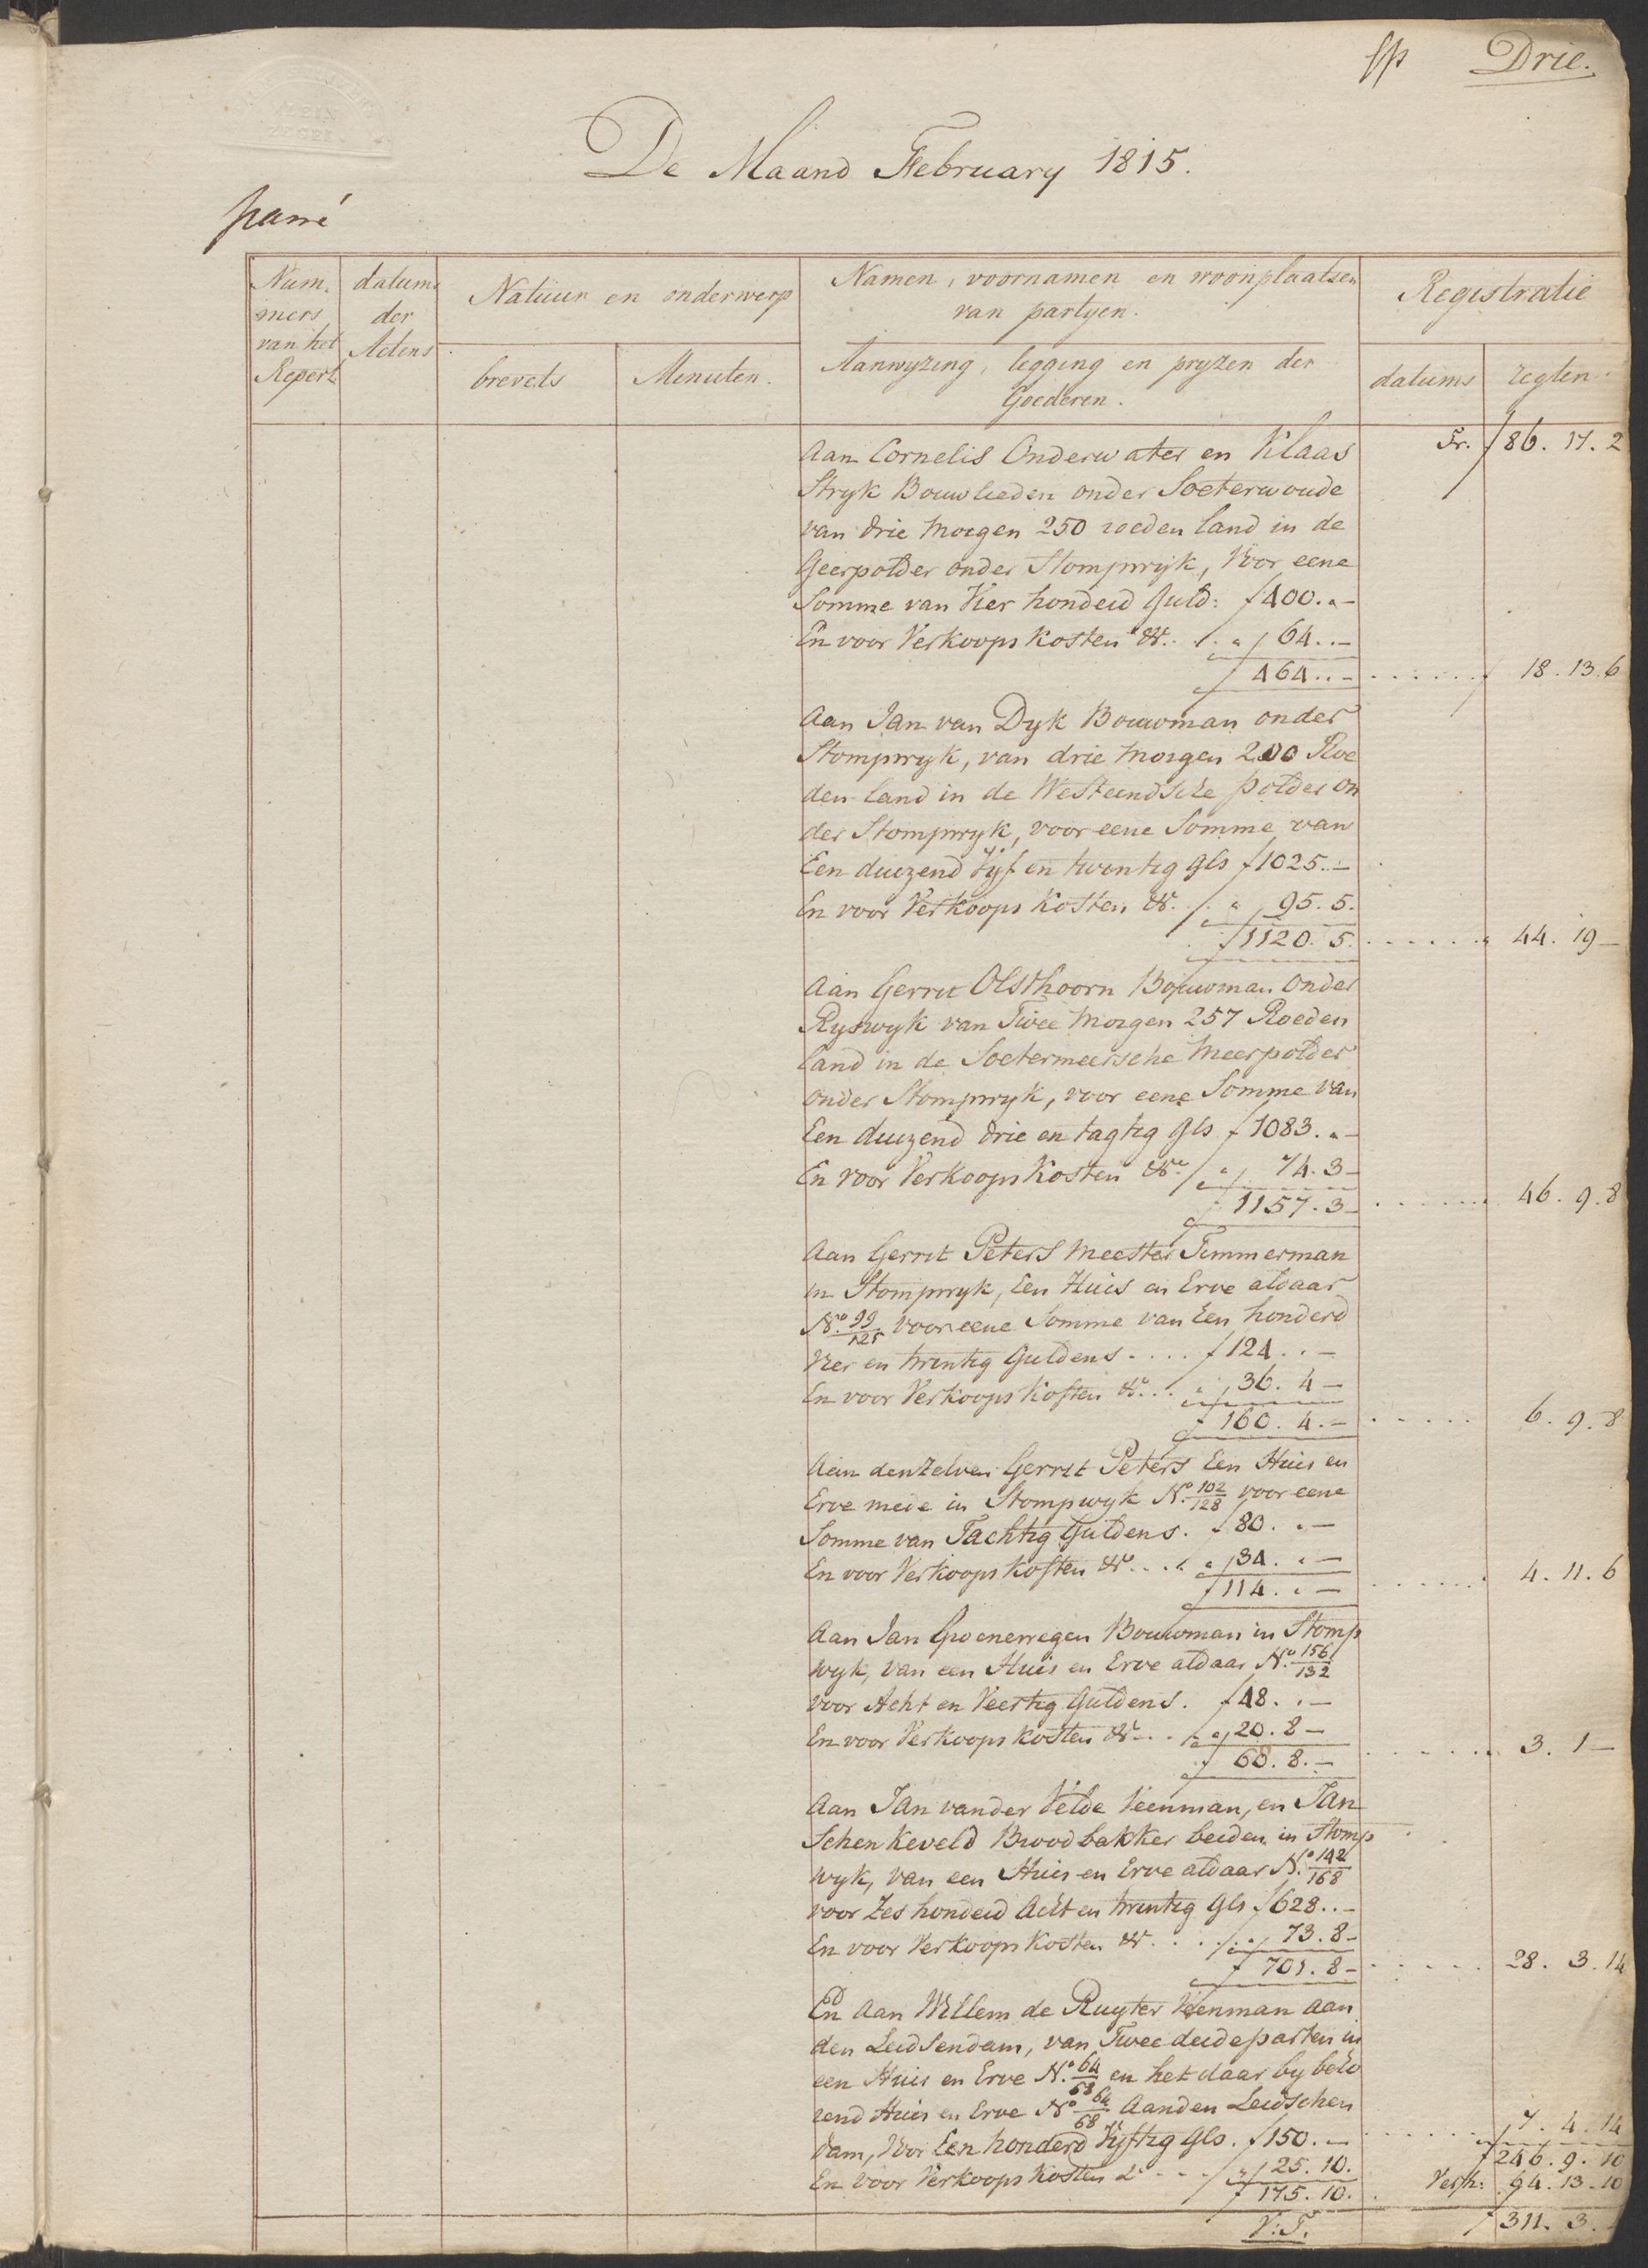 Drie.
KLEIN
ZEGEL
De Maand February 1815.
Num.
mers
van het
Repert.
datums
der
Actens
Natuur en onderwerp
brevets
Minuten.
Namen, voornamen en woonplaatsen
van partyen.
Aanwyzing, legging en pryzen der
Goederen.
Registratie
datums
regten.
Aan Cornelis Onderwater en Klaas Tr. ƒ 86. 17. 2
Stryk Bouwlieden onder Soeterwoude
van drie Morgen 250 roeden land in de
Geerpolder onder Stompwyk, Voor eene
Somme van Vier honderd Guld: ƒ 400. „ -
En voor Verkoops Kosten &c. . . „ 64. . -
ƒ 464. . - . . . . . . 18. 13. 6
Aan Jan van Dyk Bouwman onder
Stompwyk, van drie Morgen 200 Roe
den land in de Westeendsche polder on
der Stompwyk, voor eene Somme van
Een duizend Vyf en twintig gls ƒ 1025. . -
En voor Verkoops Kosten &c. . . „ 95. 5.
ƒ 1120. 5. . . . . . . „ 44. 19 -
Aan Gerrit Olsthoorn Bouwman Onder
Ryswyk van Twee Morgen 257 Roeden
land in de Soetermeersche Meerpolder
onder Stompwyk, voor eene Somme van
Een duizend drie en tagtig Gls ƒ 1083. „ -
En voor Verkoops Kosten &c. „ 74. 3 -
ƒ 1157. 3 - . . . . . . 46. 9. 8
Aan Gerrit Peters Meester Timmerman
in Stompwyk, Een Huis en Erve aldaar
No. 99/125 voor eene Somme van Een honderd
Vier en twintig Guldens . . . . ƒ 124. . -
En voor Verkoops Kosten &c. . . „ 36. 4 -
ƒ 160. 4. - . . . . . 6. 9. 8
Aan denzelven Gerrit Peters Een Huis en
Erve mede in Stompwyk No. 102/128 voor eene
Somme van Tachtig Guldens. ƒ 80. „ -
En voor Verkoops Kosten &c. . . . „ 34. „ -
ƒ 114. „ - . . . . . . 4. 11. 6
Aan Jan Groenewegen Bouwman in Stomp
wyk, van een Huis en Erve aldaar No. 156/132
voor Acht en Veertig Guldens. ƒ 48. „ -
En voor Verkoops Kosten &c. . . „ 20. 8 -
ƒ 68. 8. - . . . . . . 3. 1 -
Aan Jan vander Velde Veenman, en Jan
Schenkeveld Broodbakker beiden in Stomp
wyk, van een Huis en Erve aldaar No. 142/168
voor Zes honderd Acht en twintig Gls ƒ 628. . -
En voor Verkoops Kosten &c. . . . . „ 73. 8 -
ƒ 701. 8 - . . . . . 28. 3. 14
En Aan Willem de Ruyter Veenman aan
den Leidsendam, van Twee deideparten in
een Huis en Erve No. 64/68 en het daar by beho
rend Huis en Erve No. 64/68 Aanden Leidschen
dam, Voor Een honderd Vyftig Gls. ƒ 150. „ - . . . . . . 7. 4. 14
ƒ 246. 9. 10
En voor Verkoops Kosten &c. . . . „ 25. 10. Verh: 64. 13. 10
ƒ 175. 10.
V: T. ƒ 311. 3. -